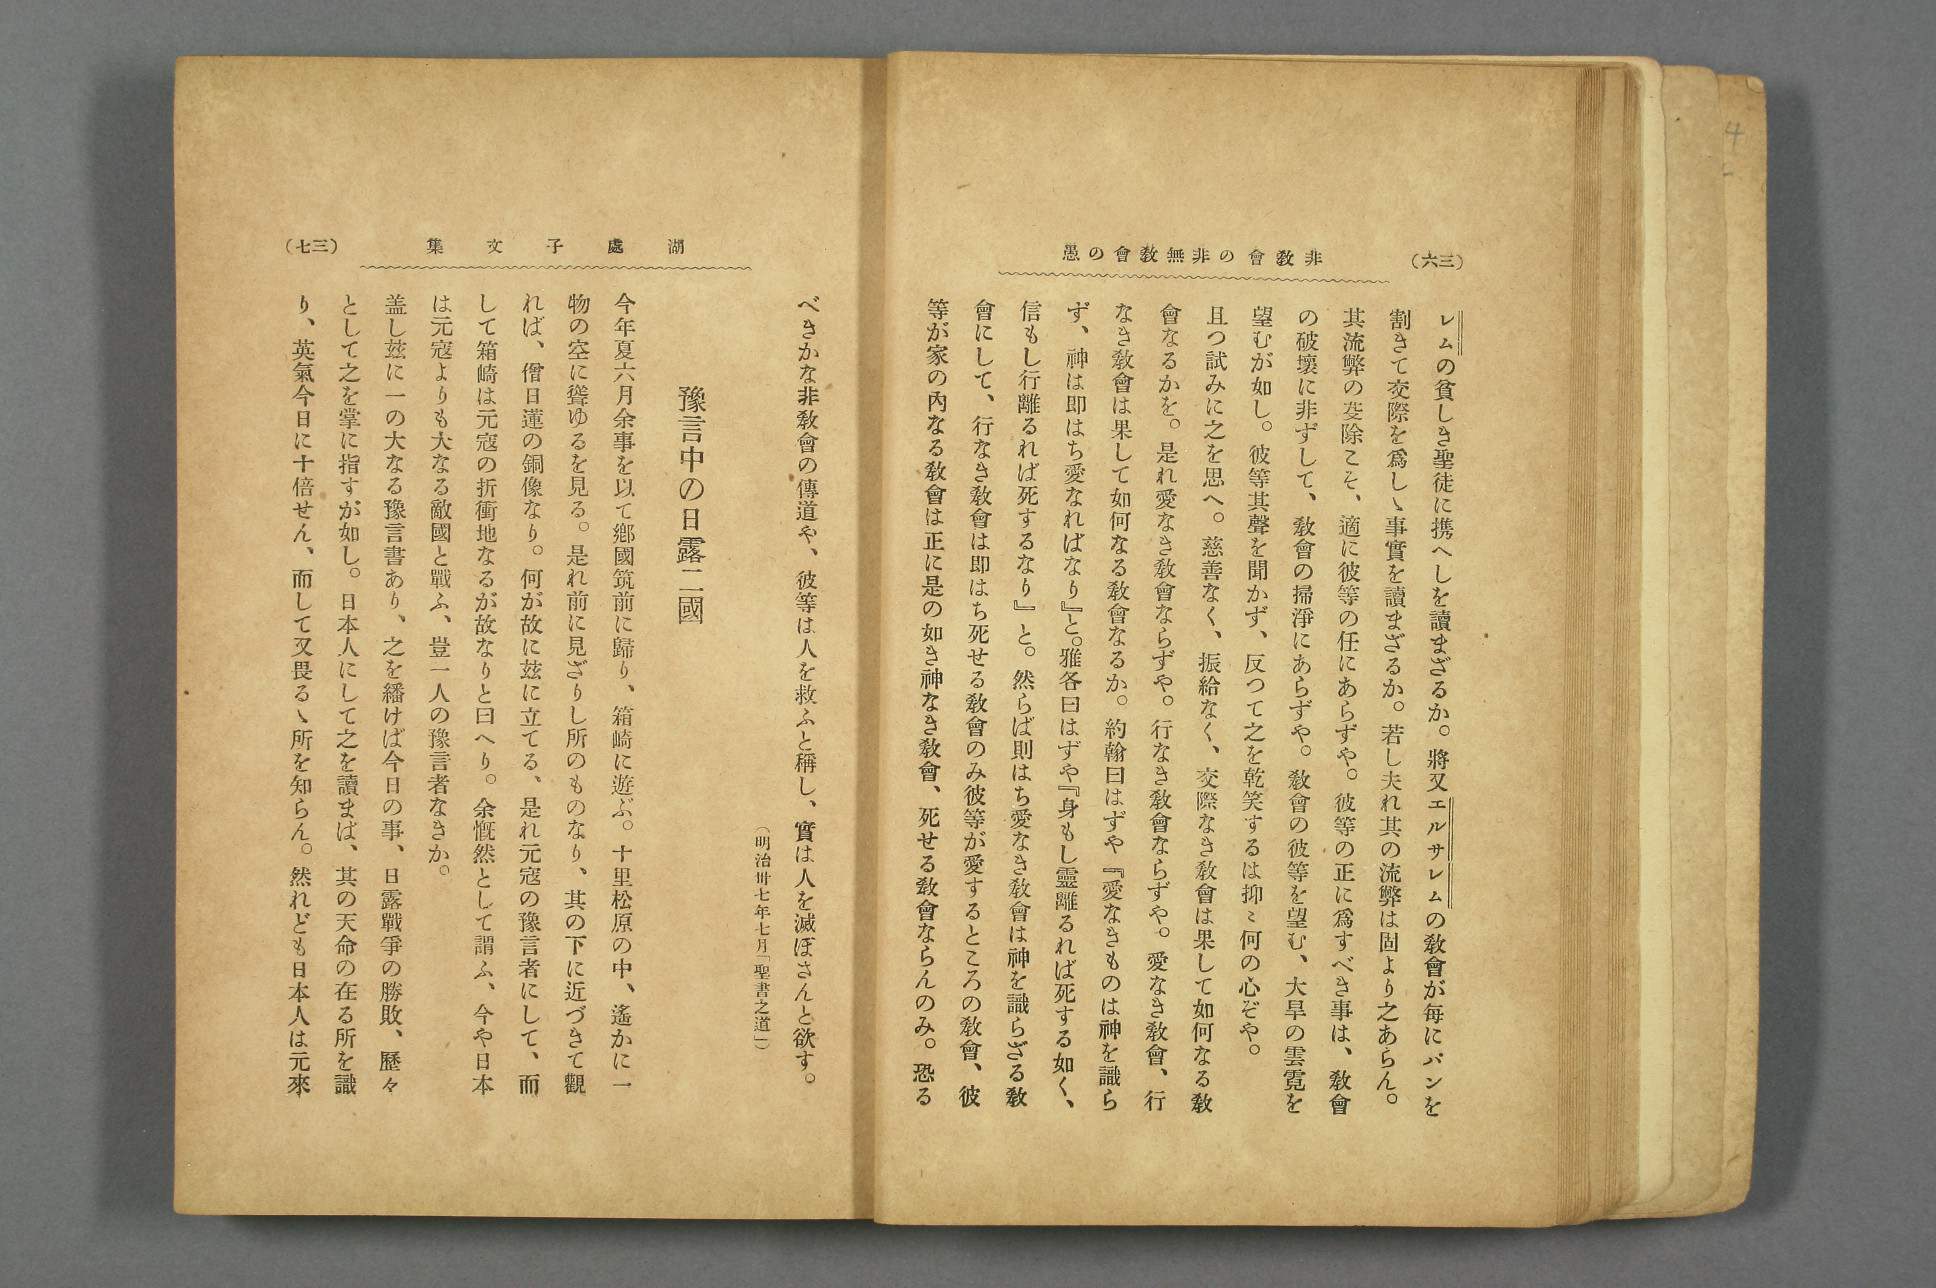 (三六)
非教會の非無教會の愚
レムの貧しき聖徒に携へしを讀まざるか。將又エルサレムの教會が每にパンを
割きて交際を爲しゝ事實を讀まざるか。若し夫れ其の流弊は固より之あらん。
其流弊の芟除こそ、適に彼等の任にあらずや。彼等の正に爲すべき事は、教會
の破壞に非ずして、教會の掃淨にあらずや。教會の彼等を望む、大旱の雲霓を
望むが如し。彼等其聲を聞かず、反つて之を乾笑するは抑〻何の心ぞや。
且つ試みに之を思へ。慈善なく、振給なく、交際なき教會は果して如何なる教
會なるかを。是れ愛なき教會ならずや。行なき教會ならずや。愛なき教會、行
なき教會は果して如何なる教會なるか。約翰曰はずや『愛なきものは神を識ら
ず、神は即はち愛なればなり』と。雅各曰はずや『身もし靈離るれば死する如く、
信もし行離るれば死するなり』と。然らば則はち愛なき教會は神を識らざる教
會にして、行なき教會は即はち死せる教會のみ彼等が愛するところの教會、彼
等が家の內なる教會は正に是の如き神なき教會、死せる教會ならんのみ。恐る
湖處子文集
(三七)
べきかな非教會の傳道や、彼等は人を救ふと稱し、實は人を滅ぼさんと欲す。
(明治卅七年七月「聖書之道」)
豫言中の日露二國
今年夏六月余事を以て鄕國筑前に歸り、箱崎に遊ぶ。十里松原の中、遙かに一
物の空に聳ゆるを見る。是れ前に見ざりし所のものなり、其の下に近づきて觀
れば、僧日蓮の銅像なり。何が故に玆に立てる、是れ元寇の豫言者にして、而
して箱崎は元寇の折衝地なるが故なりと曰へり。余慨然として謂ふ、今や日本
は元寇よりも大なる敵國と戰ふ、豈一人の豫言者なきか。
盖し玆に一の大なる豫言書あり、之を繙けば今日の事、日露戰爭の勝敗、歷々
として之を掌に指すが如し。日本人にして之を讀まば、其の天命の在る所を識
り、英氣今日に十倍せん、而して又畏るゝ所を知らん。然れども日本人は元來